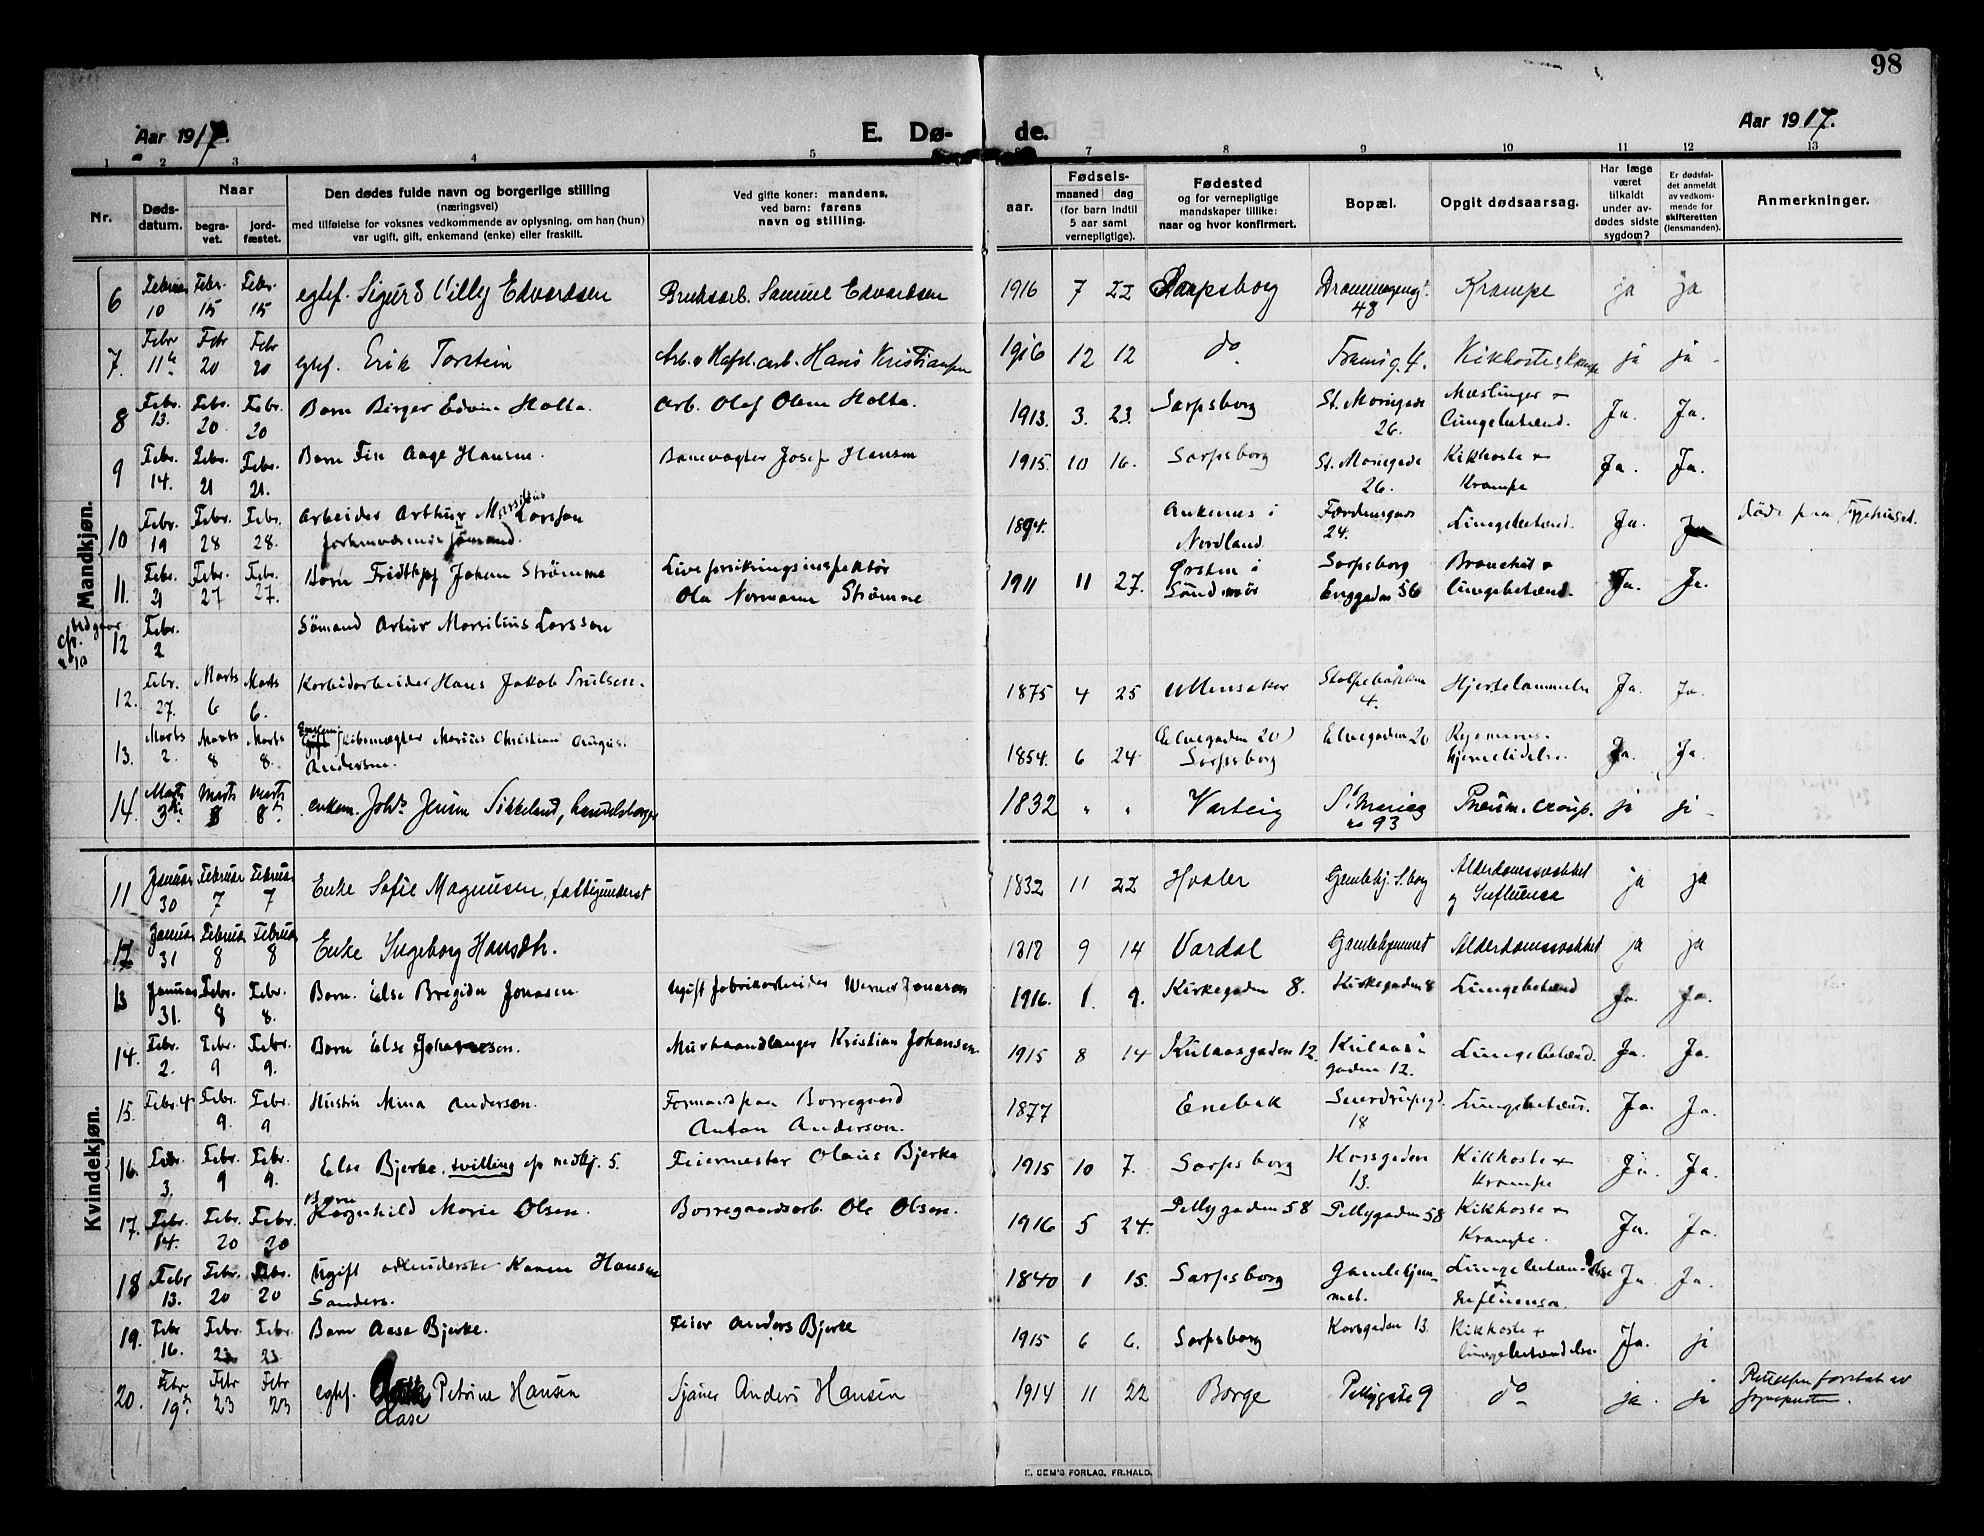 98
Aar 1917.
E. Dø- de.
Aar 1917.
1 2 3 4 5 7 8 9 10 11 12 13
Nr.
Døds-
datum.
Naar
begra-
vet.
jord-
fæstet.
Den dødes fulde navn og borgerlige stilling
(næringsvei)
med tilføielse for voksnes vedkommende av oplysning, om han (hun)
var ugift, gift, enkemand (enke) eller fraskilt.
Ved gifte koner: mandens,
ved barn: farens
navn og stilling.
Fødsels-
aar.
maaned
dag
(for barn indtil
5 aar samt
vernepligtige).
Fødested
og for vernepligtige
mandskaper tillike:
naar og hvor konfirmert.
Bopæl.
Opgit dødsaarsag.
Har læge
været
tilkaldt
under av-
dødes sidste
sygdom?
Er dødsfal-
det anmeldt
av vedkom-
mende for
skifteretten
(lensmanden).
Anmerkninger.
Mandkjøn.
6 Februar 10 Febr. 15 Febr. 15 egtef. Sigurd Villy Edvardsen Bruksarb. Samuel Edvardsen 1916 7 22 Sarpsborg 48 Krampe ja ja
7. Febr 11te Febr 20 Febr 20 egtef. Erik Torstein Hans Kristiansen 1916 12 12 do 4. Kikhoste ja ja
8 Febr. 13. Febr. 20. Febr. 20 Barn Birger Edvin Holta. Arb. Olaf Olsen Holta. 1913. 3. 23. Sarpsborg St. Mariegade 26. Mæslinger + Lungebetænd. Ja. Ja.
9 Febr. 14. Febr. 21 Febr. 21. Barn Fin Aage Hansen. Banevogter Josef Hansen 1915. 10 16. Sarpsborg St. Mariegade 26. Kikhoste + Krampe Ja. Ja.
10 Febr. 19 Febr. 28 Febr. 28. Arbeider Arthur Marsilius Larssen forhenværende sømand. 1894. Ankenes i Nordland. 24. Lungebetænd. Ja. Ja død paa Sygehuset.
11. Febr. 21 Febr. 27 Febr. 27. Barn Fridthjof Johan Strømme Livsforsikringsinspektør Ola Normann Strømme 1911 11 27. Ørsten i Søndmør Sarpsborg Enggaden 56 Bronchit + Lungebetænd. Ja. Ja.
Udgaar cfr. no 10 12 Febr. 2 Sømand Artur Marsilius Larssen
12. Febr. 27. Marts 6 Marts 6. Karbidarbeider Hans Jakob Trulsen. 1875 4 25 Ullensaker 4. Hjertelammelse Ja. Ja.
13. Marts 2. Marts 8 Marts 8. Gift Skibsmægler Marius Christian August Andersen. 1854. 6 24 (Elvegaden 20) Sarpsborg Elvegaden 20 Ja. Ja.
14. Marts 3die Marts 8 Marts 8de enkem. Johs Jensen Sikkeland, handelsborger 1832 " " Varteig St. Marieg no 93 Pneum. croup. ja ja
Kvindekjøn.
11 Januar 30 Februar 7 Februar 7 Enke Sofie Magnusen, fattigunderst 1832 11 22 Hvaler Gamlehj. S.borg Alderdomssvakhet og Influensa ja ja
12 Januar 31 Februar 8 Februar 8 Enke Ingeborg Hansdtr. 9 14 Vardal Gamlehjemmet Alderdomssvakhet ja ja
13 Januar 31. Febr. 8 Febr. 8. Barn. Else Jonasen. Ugift fabrikarbeider Werner Jonason 1916. 1. 9. Kirkegaden 8. Kirkegaden 8 Lungebetænd Ja. Ja.
14. Febr. 2. Febr. 9 Febr. 9. Barn Else Johannesen. Murhaandlanger Kristian Johansen. 1915 8 14 Kulaasgaden 12. Kulaasgaden 12. Lungebetænd. Ja. Ja.
15. Febr. 4 Febr. 9. Febr. 9 Hustru Mina Anderson. Formand paa Borregaard Anton Anderson. 1877 Enebak Sverdrupsgd. 18 Lungebetæns. Ja. Ja.
16. Febr. 3. Febr. 9 Febr. 9. Else Bjerke, tvilling cfr. 5. Feiermester Olaus Bjerke 1915 10 7. Sarpsborg Korsgaden 13. Kikhoste + Krampe Ja. Ja.
17. Febr. 14. Febr. 20 Febr. 20 Barn Ragnhild Marie Olsen. Borregaardsarb. Ole Olsen. 1916 5 24. Pellygaden 58 Pellygaden 58 Kikhoste + Krampe. Ja. Ja.
18 Febr 13. Febr. 20 Febr. 20 Ugift Karen Hansen Sanders. 1840 1 15. Sarpsborg Gamlehjemmet. Lungebetændelse + Influensa. Ja. Ja.
19. Febr 16. Febr. 23 Febr. 23. Barn Aase Bjerke. Feier Anders Bjerke 1915 6 6. Sarpsborg Korsgaden 13. Kikhoste + Lungebetændelse. Ja. ja
20. Febr 19de Febr 23 Febr 23 egtef. Aase Petrine Hansen Sjauer Anders Hansen 1914 11 22 Borge Pellygate 9 do ja. ja Rettelsen foretat av sognepresten.
E. SEM'S FORLAG, FR.HALD.